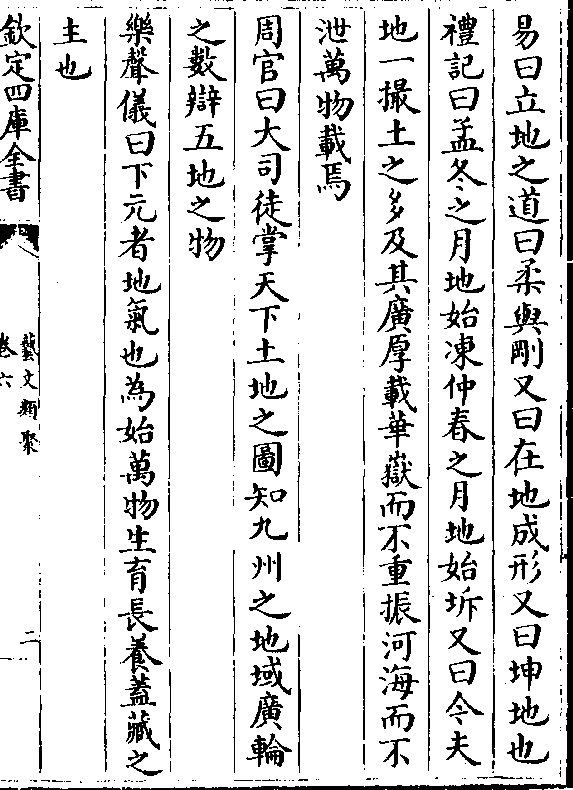 易曰立地之道曰柔與剛又曰在地成形又曰坤地也
禮記曰孟冬之月地始凍仲春之月地始坼又曰今夫
地一撮土之多及其廣厚載華嶽而不重振河海而不
泄萬物載焉
周官曰大司徒掌天下土地之圖知九州之地域廣輪
之數辯五地之物
樂聲儀曰下元者地氣也為始萬物生育長養蓋藏之
主也
欽定四庫全書
藝文類聚
卷六
二